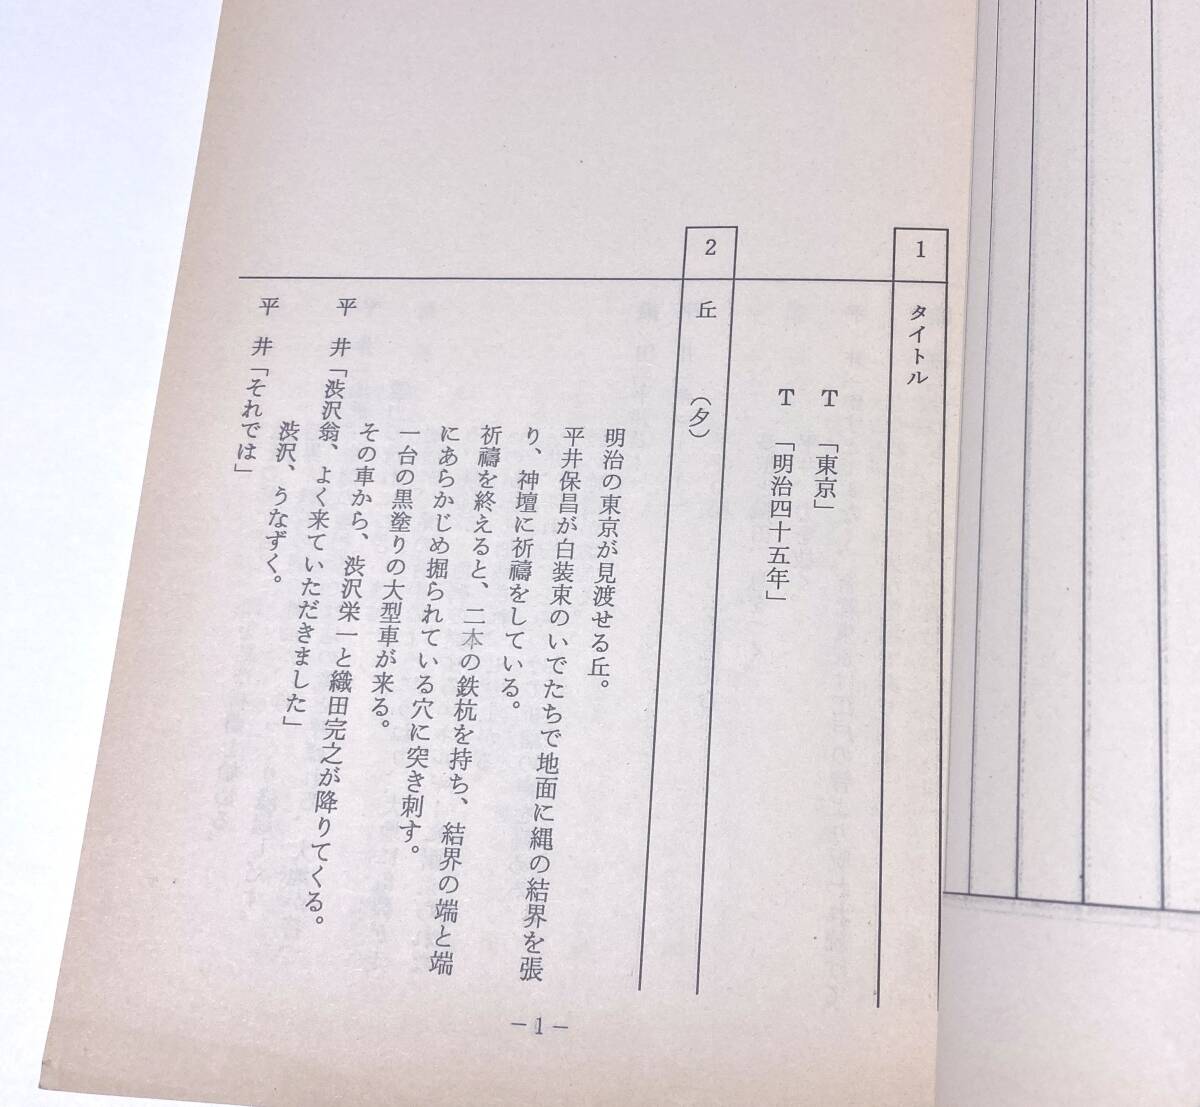 1
タイトル
T「東京」
T「明治四十五年」
2
丘（夕）
明治の東京が見渡せる丘。
平井保昌が白装束のいでたちで地面に縄の結界を張
り、神壇に祈禱をしている。
祈禱を終えると、二本の鉄杭を持ち、結界の端と端
にあらかじめ掘られている穴に突き刺す。
一台の黒塗りの大型車が来る。
その車から、渋沢栄一と織田完之が降りてくる。
平　井「渋沢翁、よく来ていただきました」
渋沢、うなずく。
平　井「それでは」
－1－